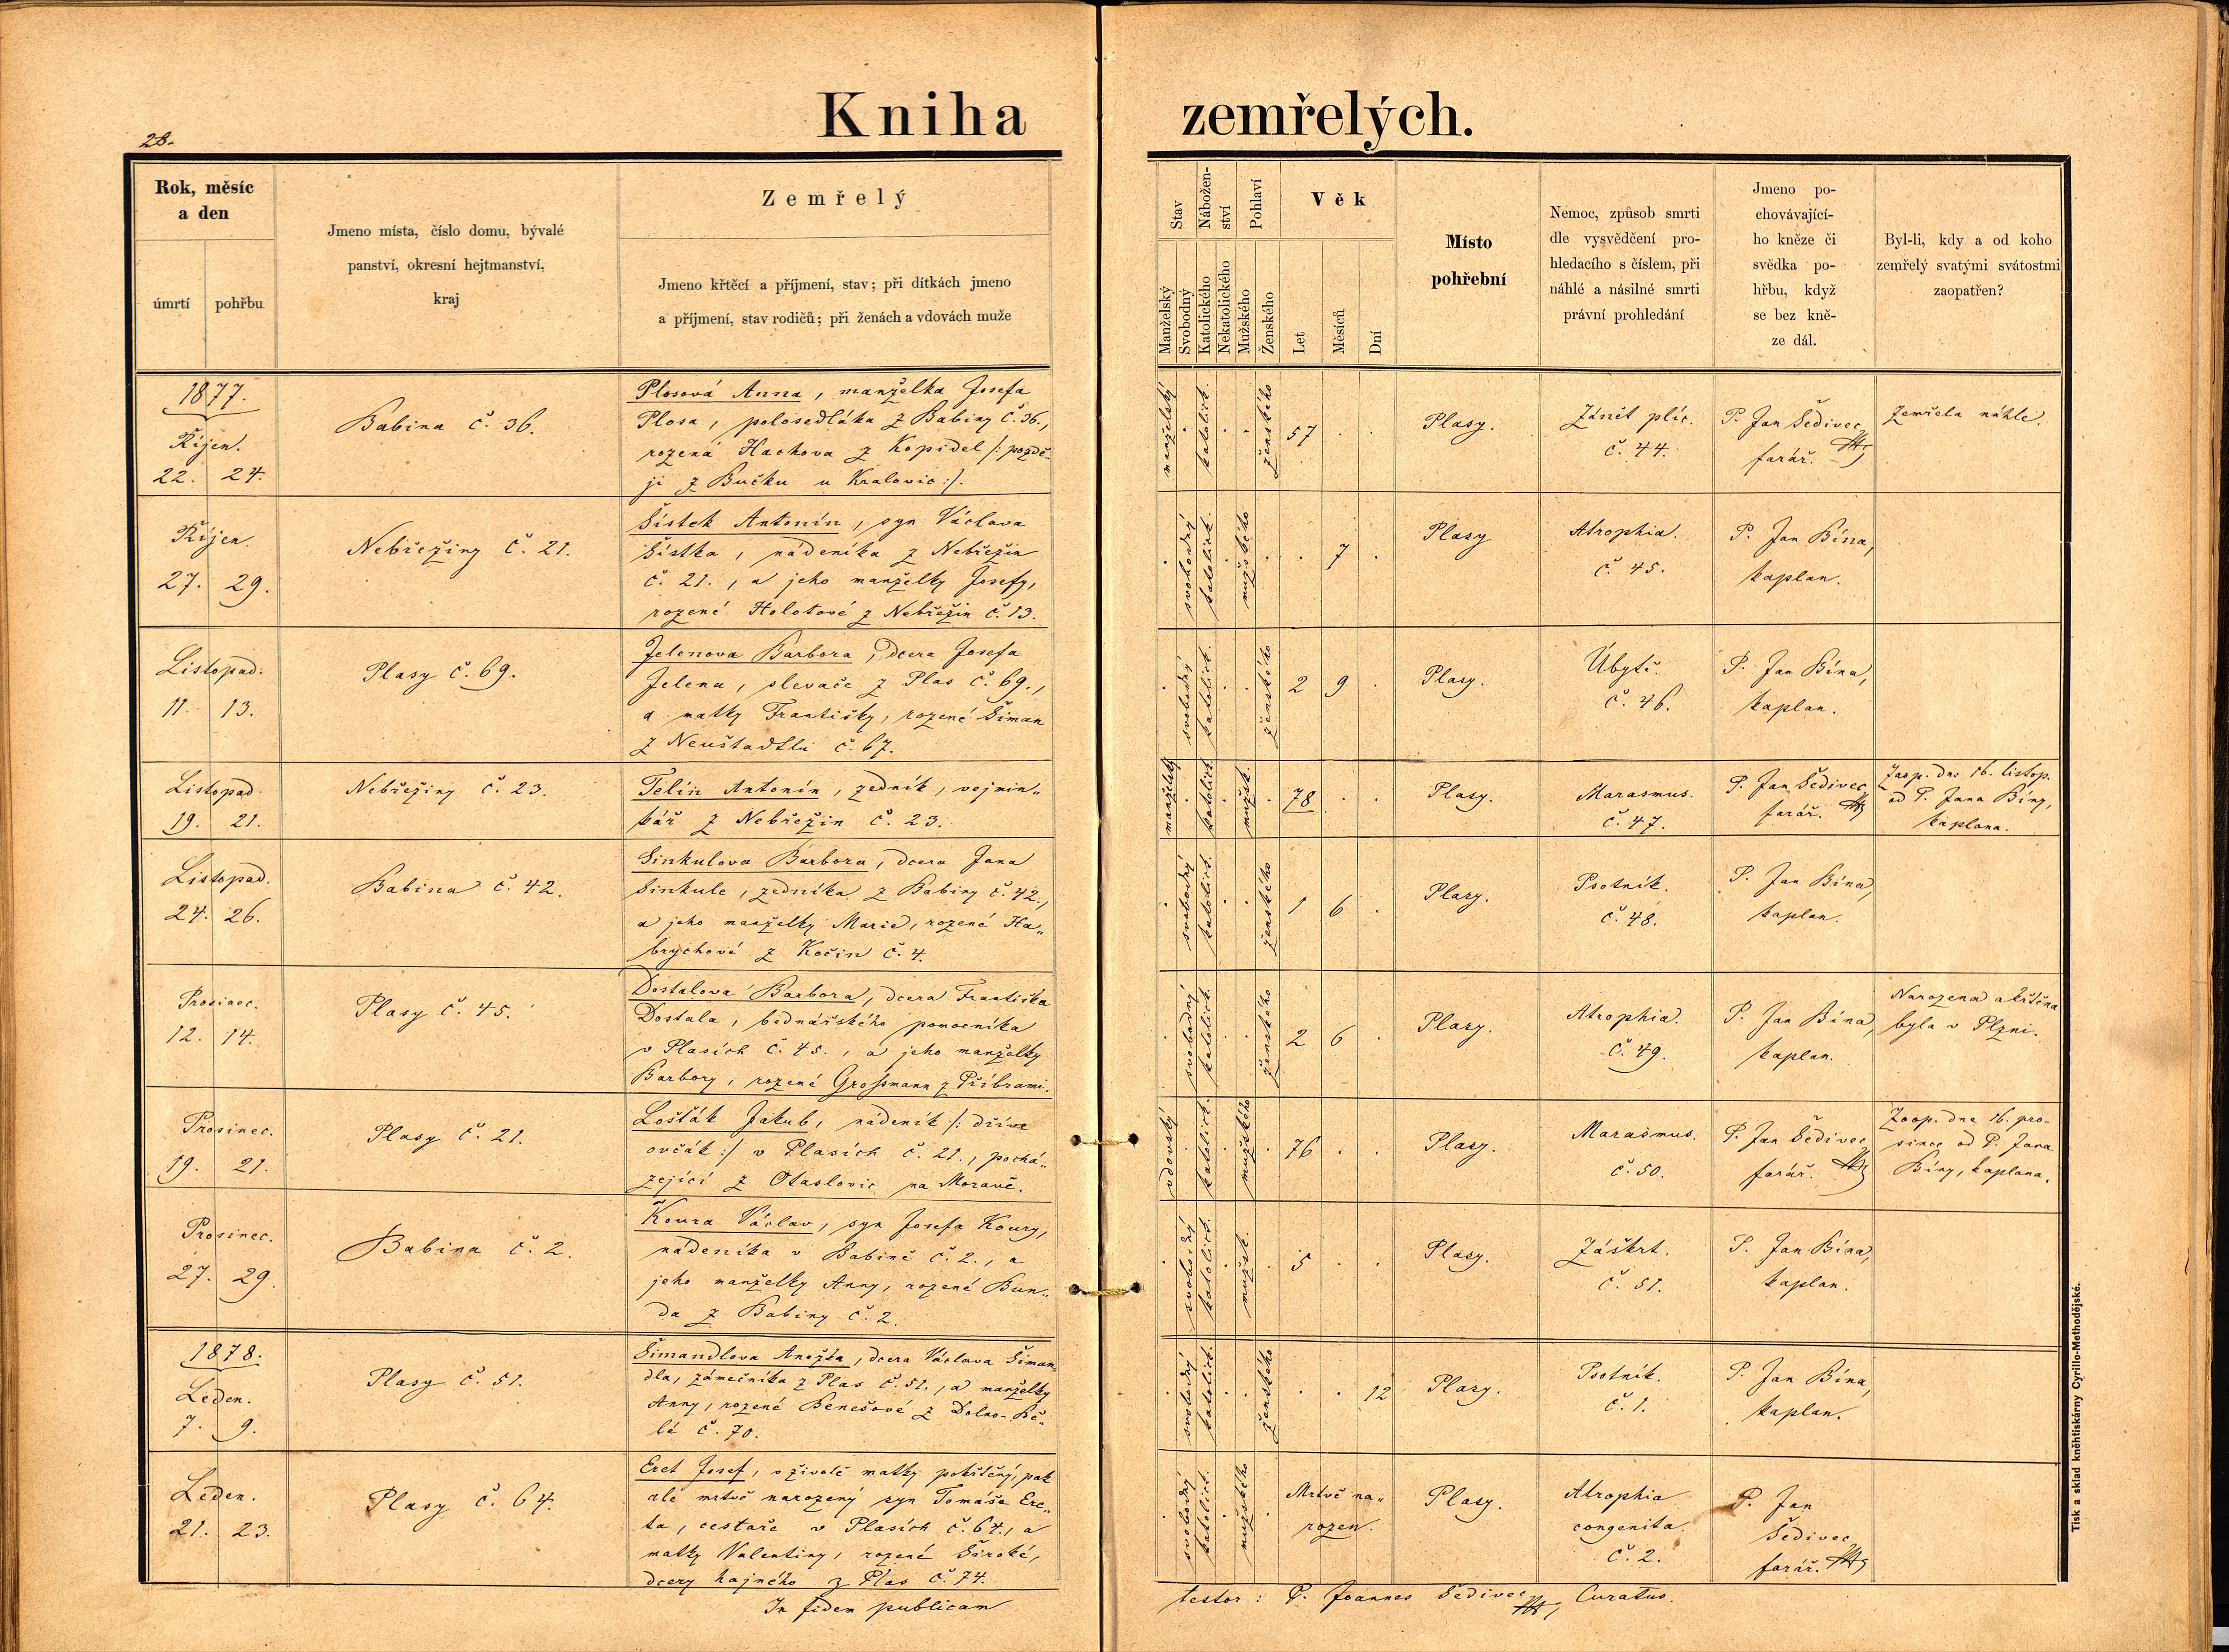 Kniha zemřelých.
28.
Rok, měsíc
a den
úmrtí
pohřbu
Jmeno místa, číslo domu, bývalé
panství, okresní hejtmanství,
kraj
Zemřelý
Jmeno křtěcí a příjmení, stav; při dítkách jmeno
a příjmení, stav rodičů; při ženách a vdovách muže
Stav
Nábožen-
ství
Pohlaví
Věk
Manželský
Svobodný
Katolického
Nekatolického
Mužského
Ženského
Let
Měsíců
Dní
Místo
pohřební
Nemoc, způsob smrti
dle vysvědčení pro-
hledacího s číslem, při
náhlé a násilné smrti
právní prohledání
Jmeno po-
chovávající-
ho kněze či
svědka po-
hřbu, když
se bez kně-
ze dál.
Byl-li, kdy a od koho
zemřelý svatými svátostmi
zaopatřen?
1877.
Říjen.
22. 24.
Babina č. 36.
Plosová Anna, manželka Josefa
Plosa, polosedláka z Babiny č. 36.,
rozená Hachova z Kopidel /: pozdě-
ji z Bučku u Kralovic :/.
manželský
katolick.
ženského
57
Plasy.
Zánět plic.
č. 44.
P. Jan Šedivec,
farář.
Zemřela náhle.
Říjen.
27. 29.
Nebřeziny č. 21.
Šístek Antonín, syn Václava
Šístka, nádeníka z Nebřezin
č. 21., a jeho manželky Josefy,
rozené Holotové z Nebřezin č. 13.
svobodný
katolick.
mužského
7
Plasy
Atrophia.
č. 45.
P. Jan Bína,
kaplan.
Listopad.
11. 13.
Plasy č. 69.
Jelenova Barbora, dcera Josefa
Jelena, slevače z Plas č. 69.,
a matky Františky, rozené Šiman
z Neustadtlu č. 67.
svobodný
katolick.
ženského
2 9
Plasy.
Úbytě.
č. 46.
P. Jan Bína,
kaplan.
Listopad.
19. 21.
Nebřeziny č. 23.
Telín Antonín, zedník, vejmin„
kář z Nebřezin č. 23.
manželský
katolick.
mužsk.
78
Plasy.
Marasmus.
č. 47.
P. Jan Šedivec,
farář.
Zaop. dne 16. listop.
od P. Jana Bíny,
kaplana.
Listopad.
24. 26.
Babina č. 42.
Sinkulova Barbora, dcera Jana
Sinkule, zedníka z Babiny č. 42.,
a jeho manželky Marie, rozené Ha„
brychové z Kočin č. 4.
svobodný
katolick.
ženského
1 6
Plasy.
Psotník.
č. 48.
P. Jan Bína,
kaplan.
Prosinec.
12. 14.
Plasy č. 45.
Dostalova Barbora, dcera Františka
Dostala, bednářského pomocníka
v Plasích č. 45., a jeho manželky
Barbory, rozené Grossmann z Příbrami.
svobodný
katolick.
ženského
2 6
Plasy.
Atrophia.
č. 49.
P. Jan Bína,
kaplan.
Narozena a křtěna
byla v Plzni.
Prosinec.
19. 21.
Plasy č. 21.
Lošťák Jakub, nádeník /: dříve
ovčák :/ v Plasích č. 21., pochá„
zející z Otaslovic na Moravě.
vdovský
katolick.
mužského
76
Plasy.
Marasmus.
č. 50.
P. Jan Šedivec,
farář.
Zaop. dne 16. pro-
since od P. Jana
Bíny, kaplana.
Prosinec.
27. 29.
Babina č. 2.
Koura Václav, syn Josefa Koury,
nádeníka v Babině č. 2., a
jeho manželky Anny, rozené Bun„
da z Babiny č. 2.
svobodný
katolick.
mužsk.
5
Plasy.
Záškrt.
č. 51.
P. Jan Bína,
kaplan.
1878.
Leden.
7. 9.
Plasy č. 51.
Šimandlova Anežka, dcera Václava Šiman„
dla, zámečníka z Plas č. 51., a manželky
Anny, rozené Benešové z Dolno-Bě„
lé č. 70.
svobodný
katolick.
ženského
12
Plasy.
Psotník.
č. 1.
P. Jan Bína,
kaplan.
Leden.
21. 23.
Plasy č. 64.
Eret Josef, v životě matky pokřtěný, pak
ale mrtvě narozený syn Tomáše Ere„
ta, cestaře v Plasích č. 64., a
matky Valentiny, rozené Široké,
dcery hajného z Plas č. 74.
svobodný
katolick.
mužského
Mrtvě na„
rozen.
Plasy.
Atrophia
congenita.
č. 2.
P. Jan
Šedivec,
farář.
In fidem publicam
testor: P. Joannes Šedivec, Curatus.
Tisk a sklad kněhtiskárny Cyrillo-Methodějské.